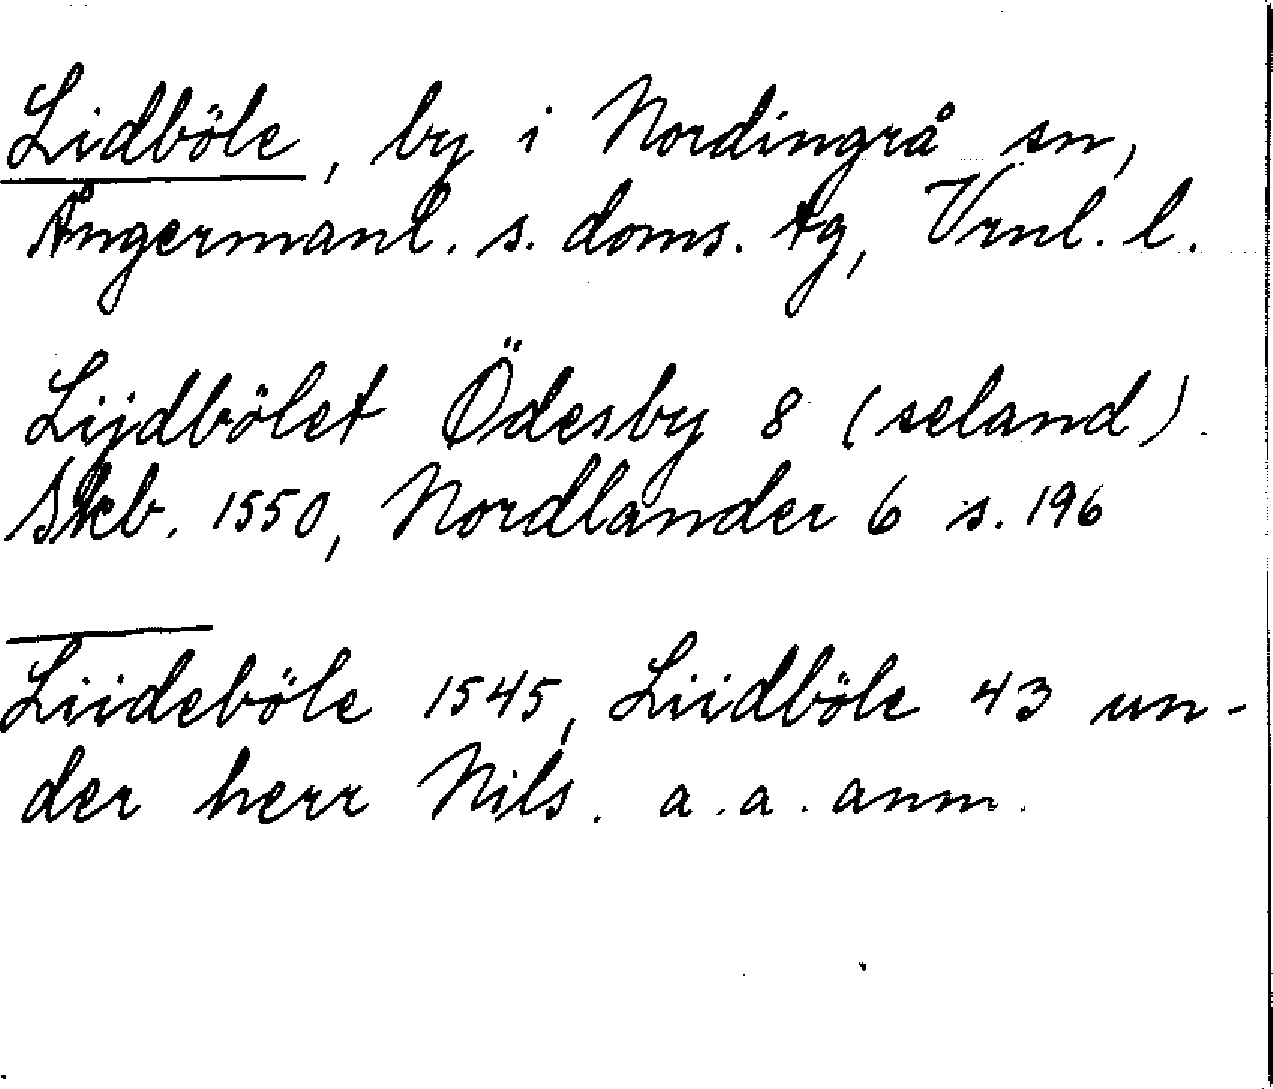 Lidböle, by i Nordingrå sn,
Ångermanl. s. doms. tg, Vrnl. l.
Lijdbölet Ödesby 8 (seland).
Skb. 1550, Nordlander 6 s. 196
Liideböle 1545, Liidböle 43 un-
der herr Nils. a. a. anm.